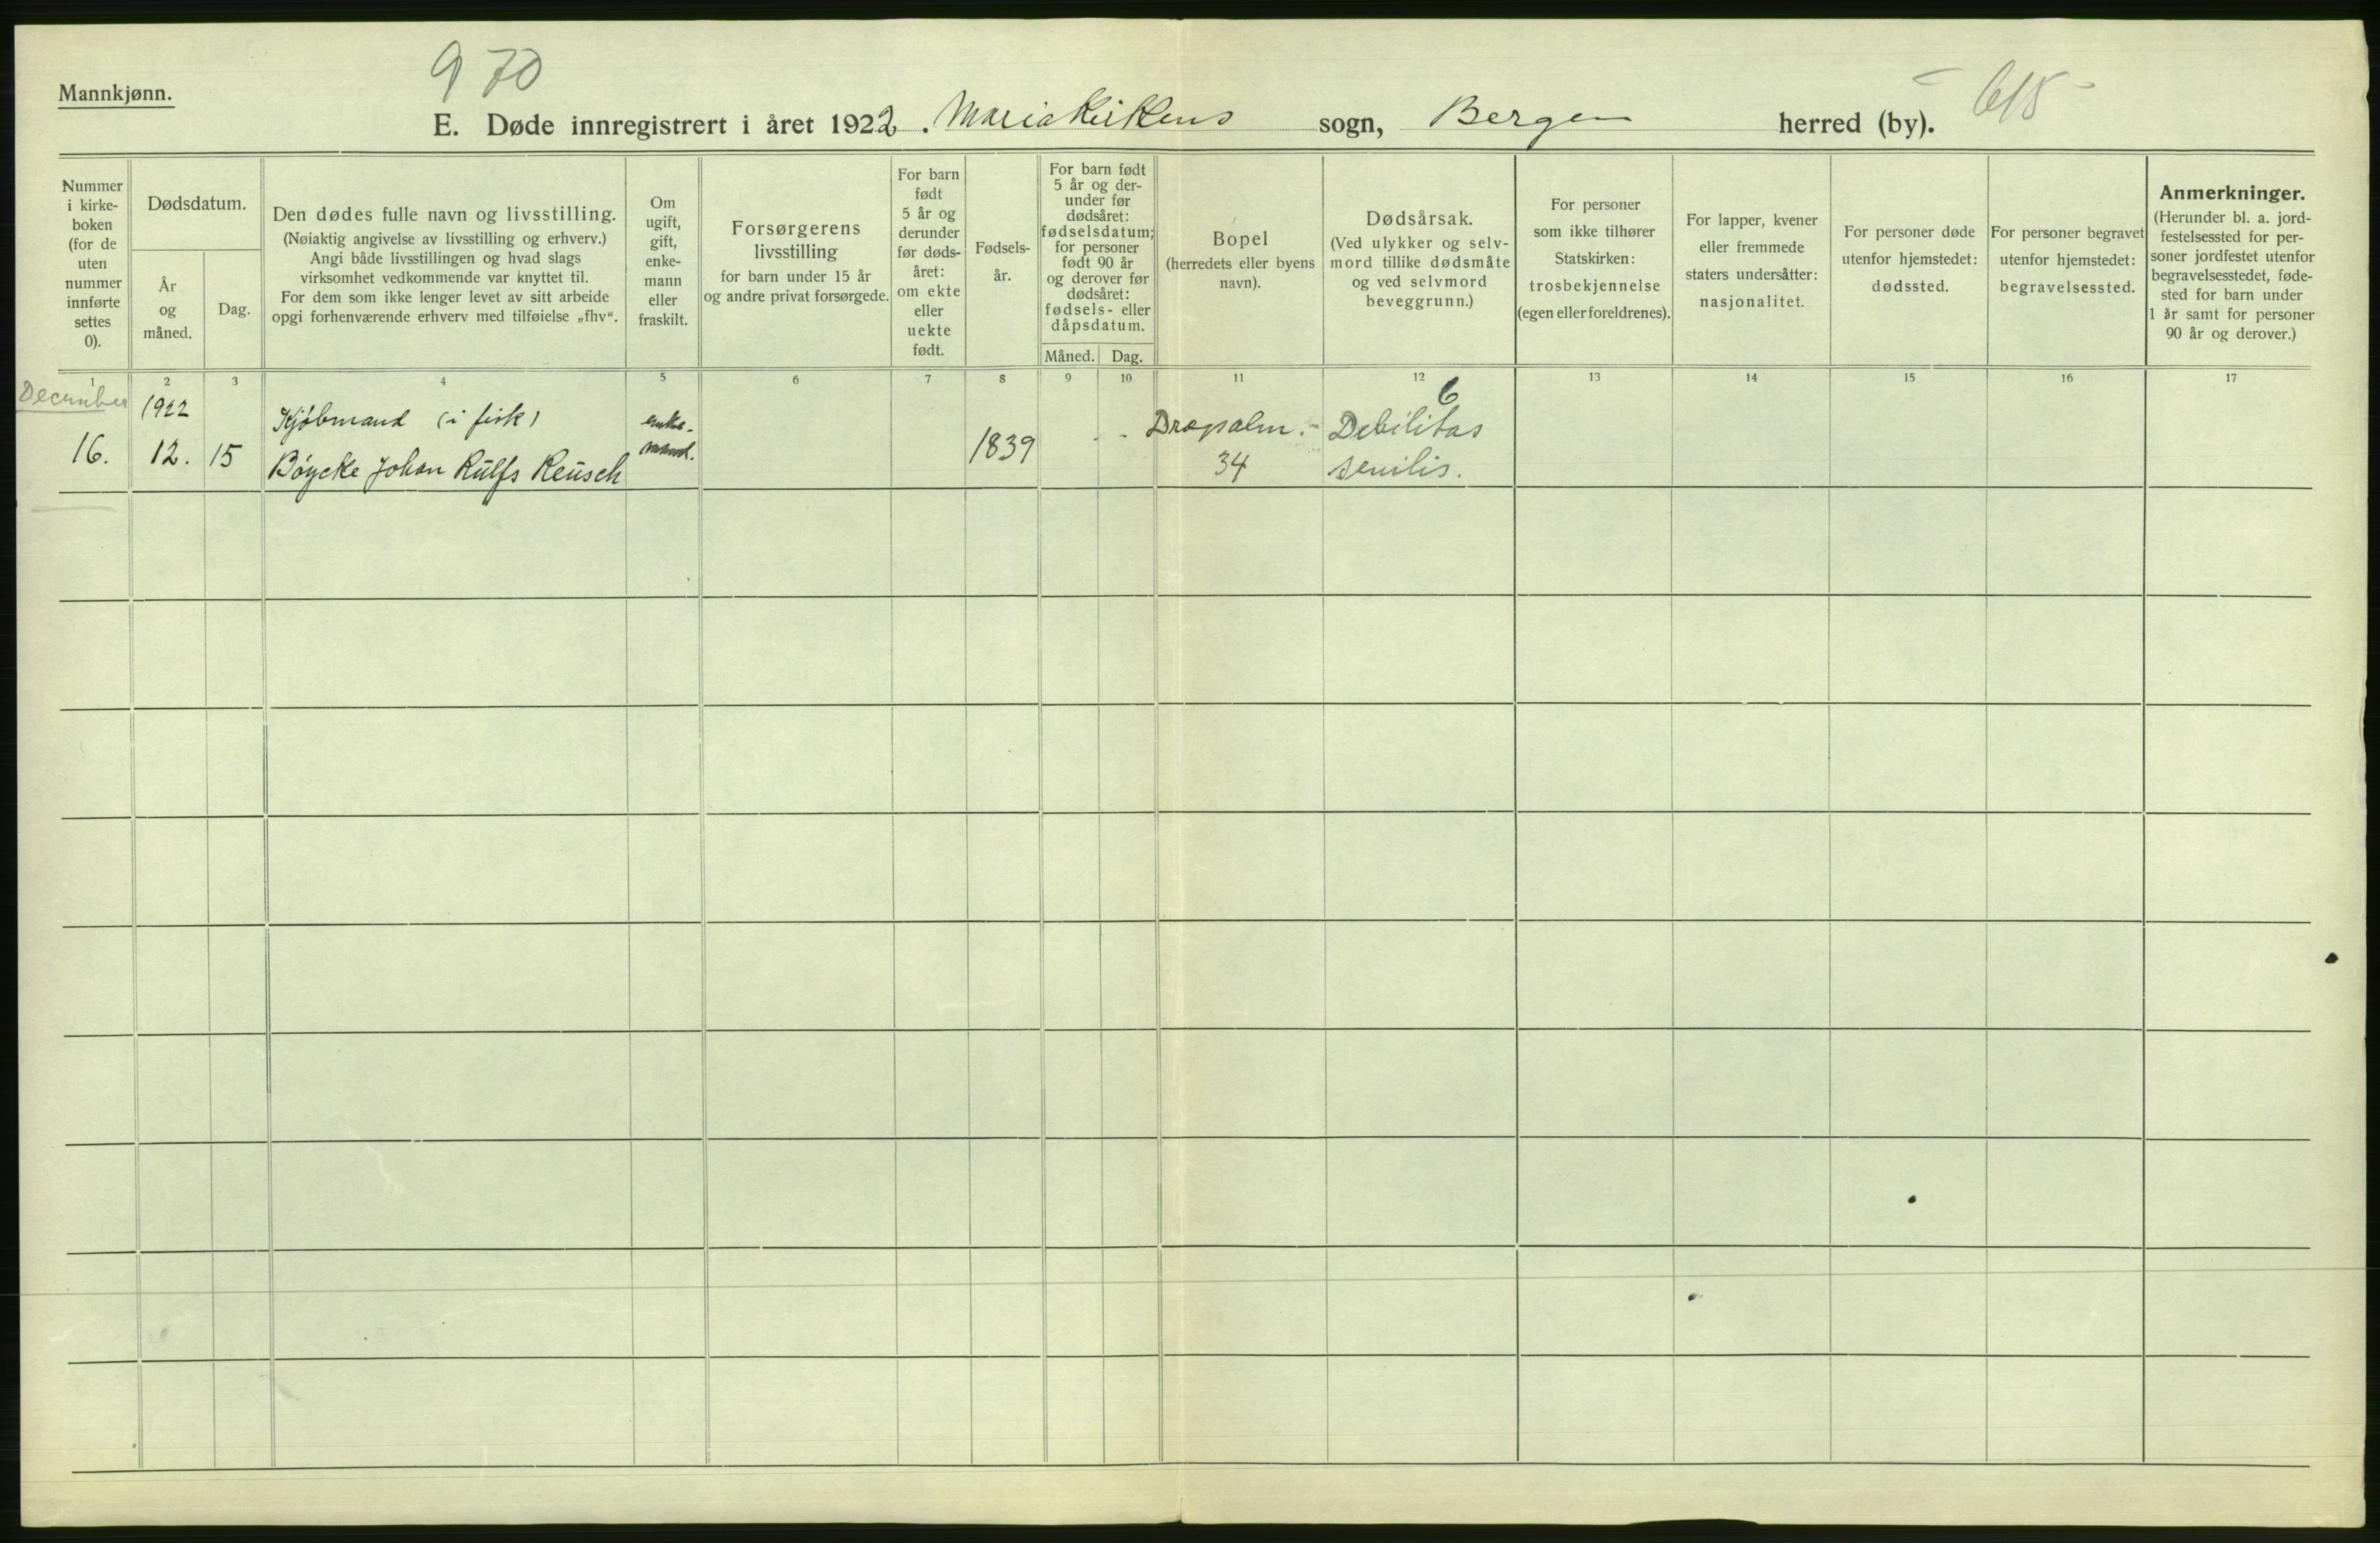 970
Mannkjønn.
E. Døde innregistrert i året 1922. Mariakirkens sogn, Bergen herred (by). 615
Nummer
i kirke-
boken
(for de
uten
nummer
innførte
settes
0).
Dødsdatum.
År
og
måned.
Dag.
Den dødes fulle navn og livsstilling.
(Nøiaktig angivelse av livsstilling og erhverv.)
Angi både livsstillingen og hvad slags
virksomhet vedkommende var knyttet til.
For dem som ikke lenger levet av sitt arbeide
opgi forhenværende erhverv med tilføielse „fhv“.
Om
ugift,
gift,
enke-
mann
eller
fraskilt.
Forsørgerens
livsstilling
for barn under 15 år
og andre privat forsørgede.
For barn
født
5 år og
derunder
før døds-
året:
om ekte
eller
uekte
født.
Fødsels-
år.
For barn født
5 år og der-
under før
dødsåret:
fødselsdatum;
for personer
født 90 år
og derover før
dødsåret:
fødsels- eller
dåpsdatum.
Måned. Dag.
Bopel
(herredets eller byens
navn).
Dødsårsak.
(Ved ulykker og selv-
mord tillike dødsmåte
og ved selvmord
beveggrunn.)
For personer
som ikke tilhører
Statskirken:
trosbekjennelse
(egen eller foreldrenes).
For lapper, kvener
eller fremmede
staters undersåtter:
nasjonalitet.
For personer døde
utenfor hjemstedet:
dødssted.
For personer begravet
utenfor hjemstedet:
begravelsessted.
Anmerkninger.
(Herunder bl. a. jord-
festelsessted for per-
soner jordfestet utenfor
begravelsesstedet, føde-
sted for barn under
1 år samt for personer
90 år og derover.)
1 2 3 4 5 6 7 8 9 10 11 12 13 14 15 16 17
December
1922
16. 12. 15
Kjøbmand (i fisk)
Bøycke Johan Rulfs Reusch
enke-
mand.
1839
34
6
Debilitas
senilis.